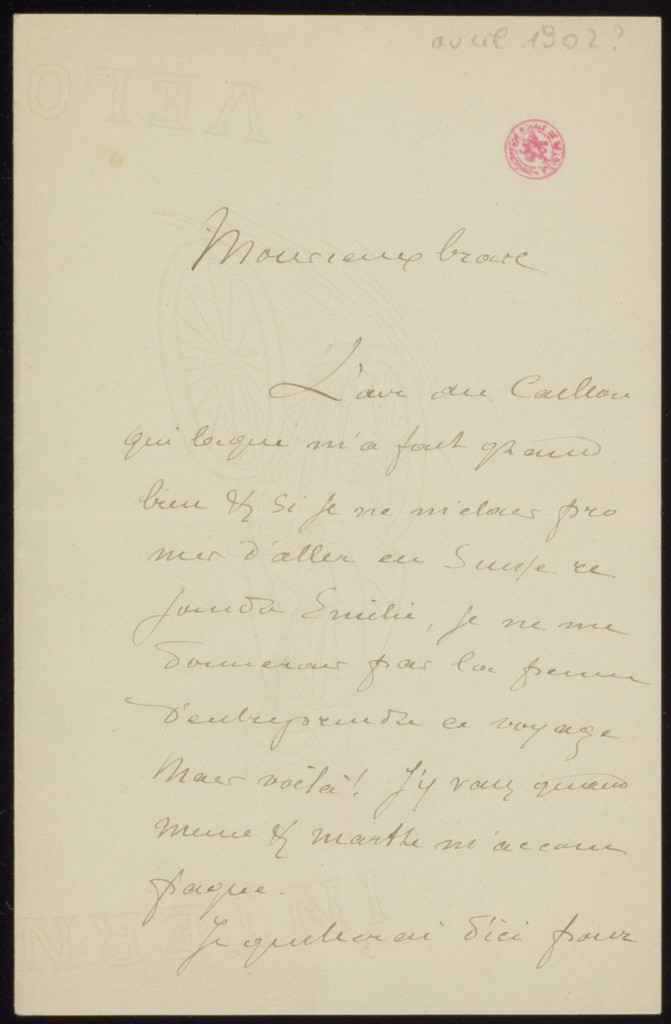 avril 1902?
Monsieur brave
L'air du Caillou
qui bique m'a fait grand
bien & si je ne m'etais pro
mis d'aller en Suisse re
joindre Emilie, je ne me
donnerais pas la peine
d'entreprendre ce voyage
Mais voilà! J'y vais quand
meme & Marthe m'accom
pagne.
Je quitterai d'ici pour
VELO